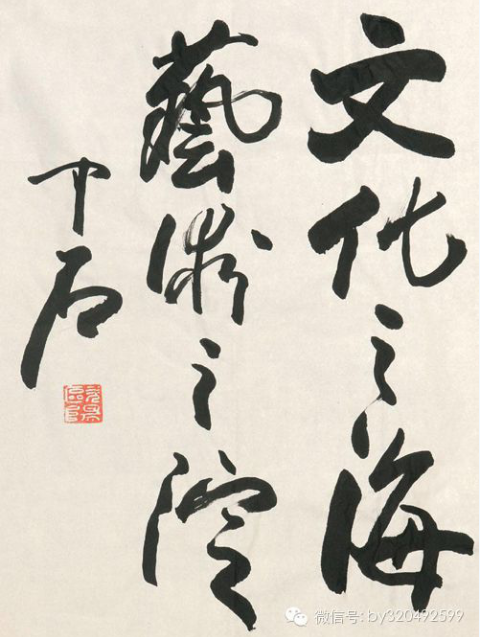 文化之海
藝術之淀
中石
微信号: by320492599